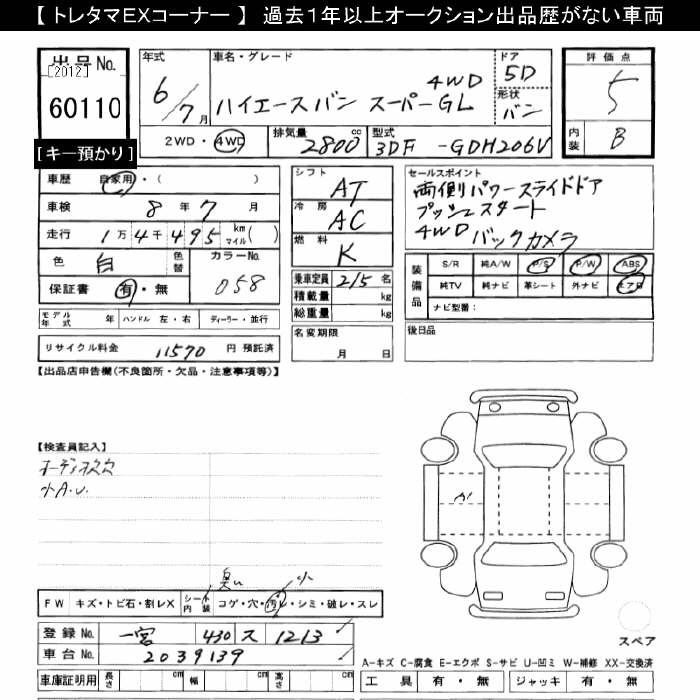 【 トレタマEXコーナー 】 過去1年以上オークション出品歴がない車両
出品No.
[2012]
60110
[キー預かり]
年式
6/7月
車名・グレード
ハイエースバン スーパーGL
4WD
ドア
5D
形状
バン
評価点
5
内装
B
2WD・4WD
排気量
2800cc
型式
3DF -GDH206V
車歴 自家用・( )
車検 8年 7月
走行 1万 4千 495 km マイル( )
色 白 色替 カラーNo. 058
保証書 有・無
モデル年式 年 ハンドル 左・右 ディーラー・並行
リサイクル料金 11570 円 預託済
シフト AT
冷房 AC
燃料 K
乗車定員 2/5 名
積載量 kg
総重量 kg
名変期限 月 日
セールスポイント
両側パワースライドドア
プッシュスタート
4WD バックカメラ
装備品
S/R 純A/W P/S P/W ABS
純TV 純ナビ 革シート 外ナビ エアB
ナビ型番:
後日品
【出品店申告欄(不良箇所・欠品・注意事項等)】
【検査員記入】
オーディオ欠
小A.U.
臭い 小
FW キズ・トビ石・割レX シート内装 コゲ・穴・汚レ・シミ・破レ・スレ
登録No. 一宮 430 ス 1213
車台No. 2039139
車庫証明用 長さ cm 幅 cm 高さ cm
スペア
A-キズ C-腐食 E-エクボ S-サビ U-凹ミ W-補修 XX-交換済
工具 有・無 ジャッキ 有・無